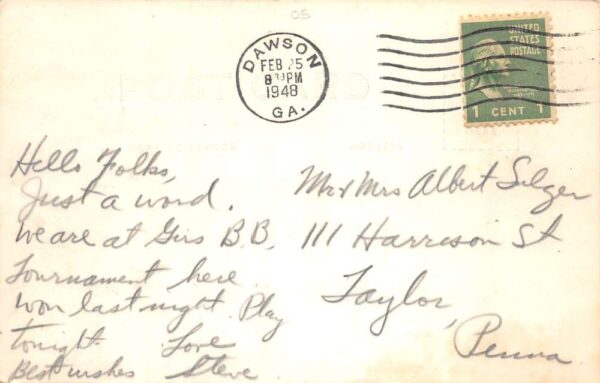 DAWSON
FEB 25
8 30 PM
1948
GA.
UNITED
STATES
POSTAGE
1 CENT 1
Hello Folks,
Just a word.
We are at Girs B.B.
Tournament here
Won last night. Play
tonight. Love
Best wishes Steve
Mr & Mrs Albert Selger
111 Harrison St
Taylor,
Penna